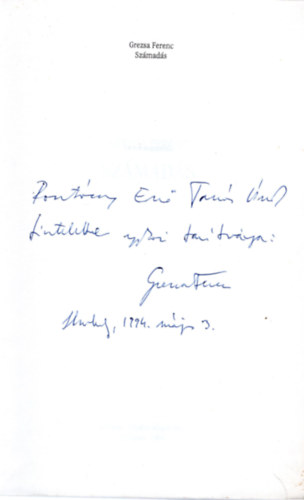 Grezsa Ferenc
Számadás
Ernő Tanár Úrnak
tisztelettel egykori tanítványa:
Grezsa Ferenc
1994. május 3.